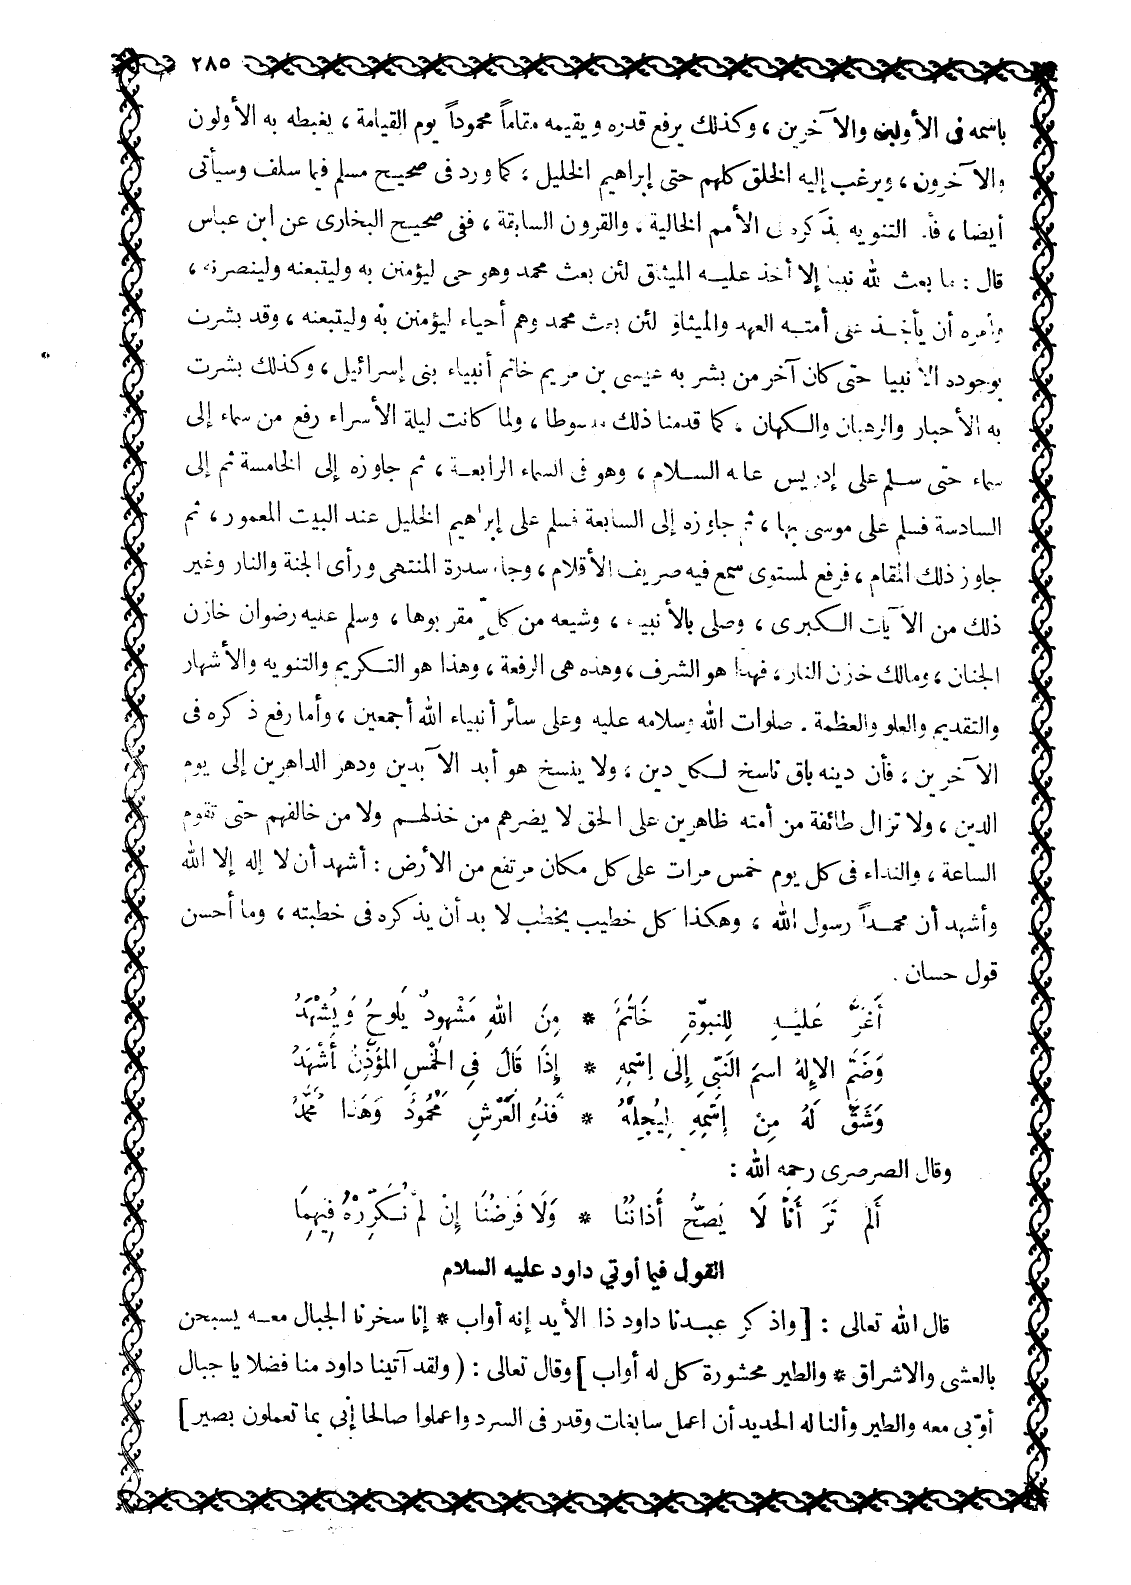 ٢٨٥
باسمه فى الأولين والآخرين ، وكذلك يرفع قدره ويقيمه مقاماً محموداً يوم القيامة ، يغبطه به الأولون
والآخرون ، ويرغب إليه الخلق كلهم حتى إبراهيم الخليل ، كما ورد فى صحيح مسلم فيما سلف وسيأتى
أيضا ، فأما التنويه بذكره فى الأمم الخالية ، والقرون السابقة ، ففى صحيح البخارى عن ابن عباس
قال : ما بعث الله نبيا إلا أخذ عليه الميثاق لئن بعث محمد وهو حى ليؤمنن به وليتبعنه ولينصرنه ،
وأمره أن يأخذ على أمته العهد والميثاق لئن بعث محمد وهم أحياء ليؤمنن به وليتبعنه ، وقد بشرت
بوجوده الأنبياء حتى كان آخر من بشر به عيسى بن مريم خاتم أنبياء بنى إسرائيل ، وكذلك بشرت
به الأحبار والرهبان والكهان ، كما قدمنا ذلك مبسوطا ، ولما كانت ليلة الأسراء رفع من سماء إلى
سماء حتى سلم على إدريس عليه السلام ، وهو فى السماء الرابعة ، ثم جاوزه إلى الخامسة ثم إلى
السادسة فسلم على موسى بها ، ثم جاوزه إلى السابعة فسلم على إبراهيم الخليل عند البيت المعمور ، ثم
جاوز ذلك المقام ، فرفع لمستوى سمع فيه صريف الأقلام ، وجاء سدرة المنتهى ورأى الجنة والنار وغير
ذلك من الآيات الكبرى ، وصلى بالأنبياء ، وشيعه من كلٍّ مقربوها ، وسلم عليه رضوان خازن
الجنان ، ومالك خازن النار ، فهذا هو الشرف ، وهذه هى الرفعة ، وهذا هو التكريم والتنويه والأشهار
والتقديم والعلو والعظمة . صلوات الله وسلامه عليه وعلى سائر أنبياء الله أجمعين ، وأما رفع ذكره فى
الآخرين ، فأن دينه باق ناسخ لكل دين ، ولا ينسخ هو أبد الآبدين ودهر الداهرين إلى يوم
الدين ، ولا تزال طائفة من أمته ظاهرين على الحق لا يضرهم من خذلهم ولا من خالفهم حتى تقوم
الساعة ، والنداء فى كل يوم خمس مرات على كل مكان مرتفع من الأرض : أشهد أن لا إله إلا الله
وأشهد أن محمداً رسول الله ، وهكذا كل خطيب يخطب لا بد أن يذكره فى خطبته ، وما أحسن
قول حسان .
أَغَرُّ عَلَيْهِ لِلنبوّةِ خَاتَمٌ * مِنَ اللهِ مَشْهودٌ يَلوحُ وَيُشْهَدُ
وَضَمَّ الإلهُ اسمَ النَّبىِّ إِلَى اسْمِهِ * إِذَا قَالَ فِى الخَمْسِ المؤَذِّنُ أَشْهَدُ
وَشَقَّ لَهُ مِنْ إِسْمِهِ لِيُجِلَّهُ * فَذُو الْعَرْشِ مَحْمُودٌ وَهَذَا مُحَمَّدُ
وقال الصرصرى رحمه الله :
أَلم تَرَ أَنّاَ لَا يَصحُّ أَذَانُنَا * وَلَا فَرْضُنَا إِنْ لمْ نُكَرِّرْهُ فِيهِمَا
القول فيما أوتي داود عليه السلام
قال الله تعالى : [ واذكر عبدنا داود ذا الأيد إنه أواب * إنا سخرنا الجبال معه يسبحن
بالعشى والاشراق * والطير محشورة كل له أواب ] وقال تعالى : ( ولقد آتينا داود منا فضلا يا جبال
أوّبى معه والطير وألنا له الحديد أن اعمل سابغات وقدر فى السرد واعملوا صالحا إنى بما تعملون بصير ]